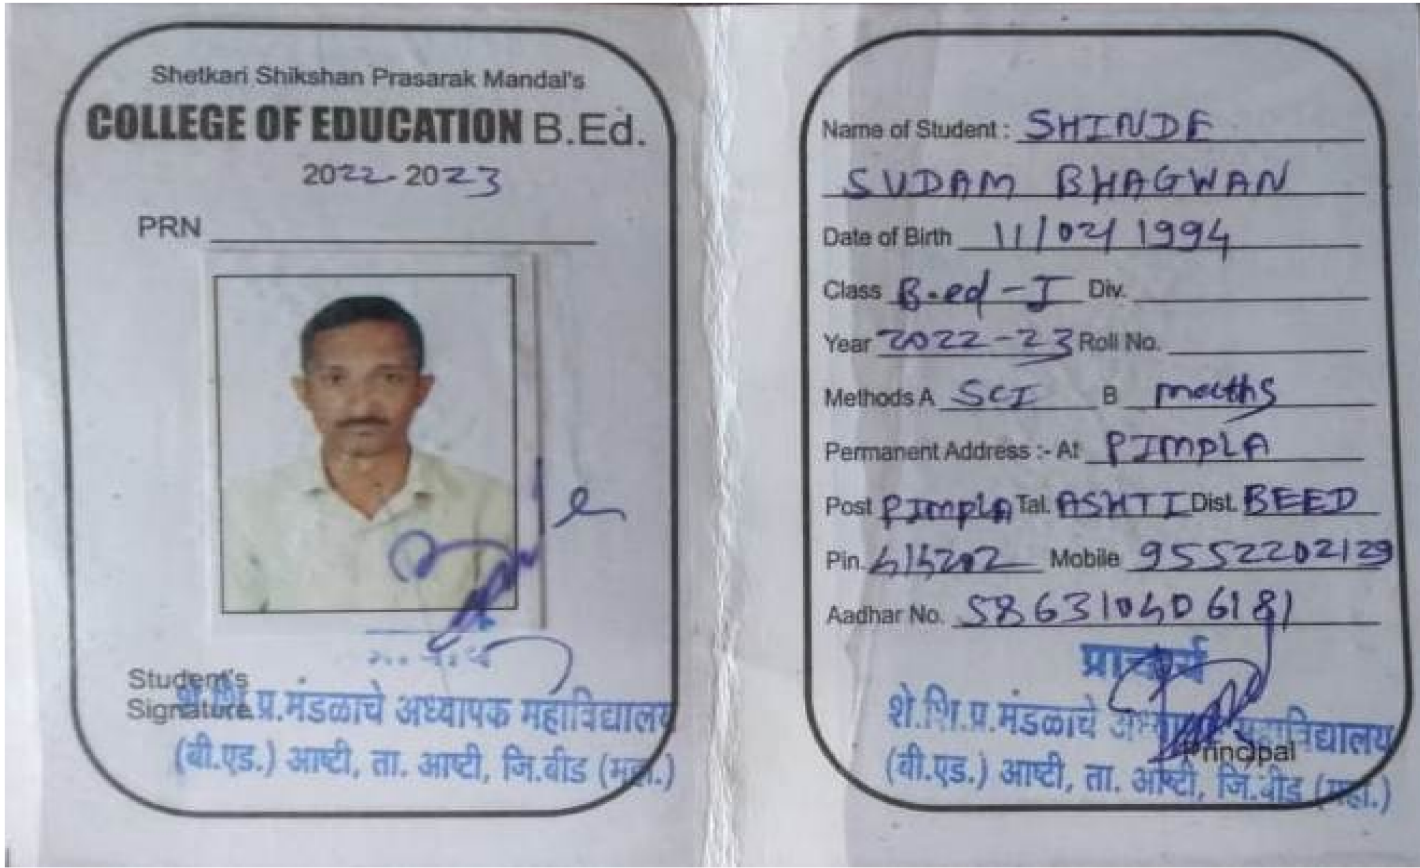 Shetkari Shikshan Prasarak Mandal's
COLLEGE OF EDUCATION B.Ed.
2022-2023
PRN
Student's
Signature
शे.शि.प्र.मंडळाचे अध्यापक महाविद्यालय
(बी.एड.) आष्टी, ता. आष्टी, जि.बीड (महा.)
Name of Student : SHINDE
SUDAM BHAGWAN
Date of Birth 11/02/1994
Class B.ed-I Div.
Year 2022-23 Roll No.
Methods A SCI B maths
Permanent Address :- At PIMPLA
Post PImpLA Tal. ASHTI Dist. BEED
Pin. 414202 Mobile 9552202129
Aadhar No. 586310406181
प्राचार्य
शे.शि.प्र.मंडळाचे अध्यापक महाविद्यालय
Principal
(बी.एड.) आष्टी, ता. आष्टी, जि.बीड (महा.)